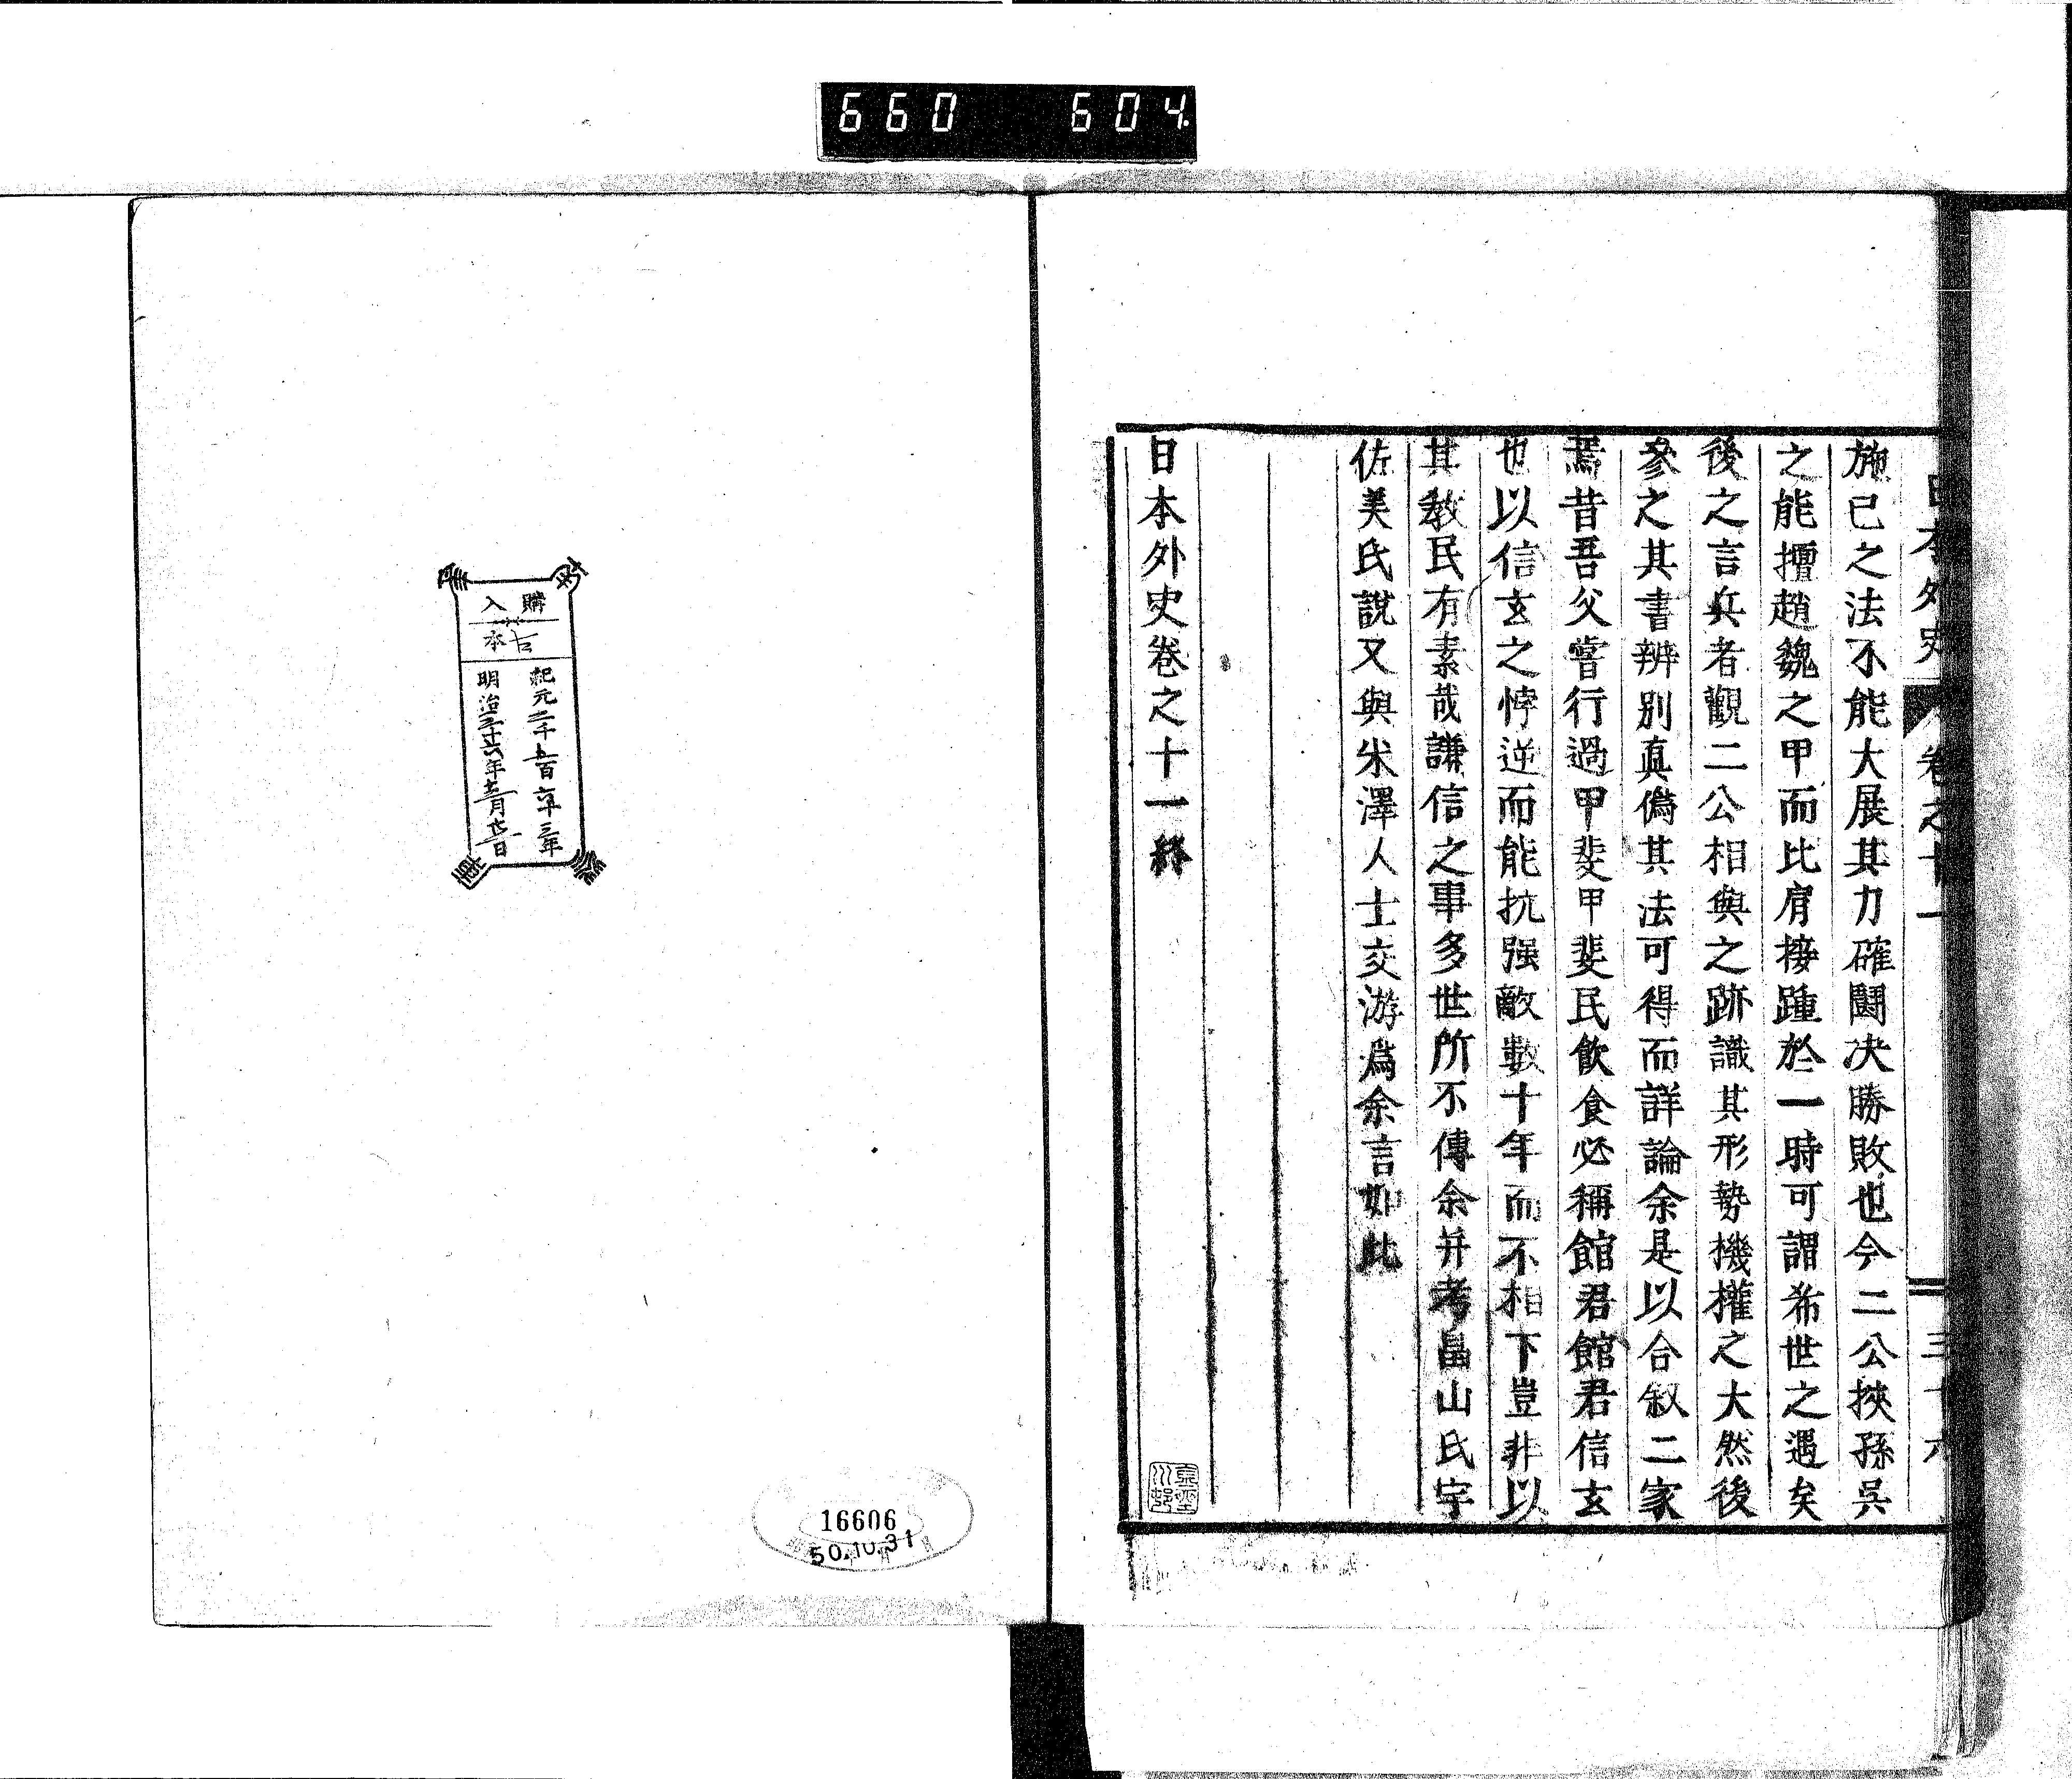 660 604
日本外史 卷之十一 三十六
施己之法不能大展其力確鬪决勝敗也今二公挾孫吳
之能擅趙魏之甲而比肩接踵於一時可謂希世之遇矣
後之言兵者觀二公相與之跡識其形勢機權之大然後
參之其書辨別真僞其法可得而詳論余是以合叙二家
焉昔吾父嘗行過甲斐甲斐民飮食必稱館君館君信玄
也以信玄之悖逆而能抗强敵數十年而不相下豈非以
其敎民有素哉謙信之事多世所不傳余并考畠山氏宇
佐美氏說又與米澤人士交游爲余言如此
日本外史卷之十一終
購入
古本
紀元二千五百六十三年
明治三十六年
16606
50.10.31